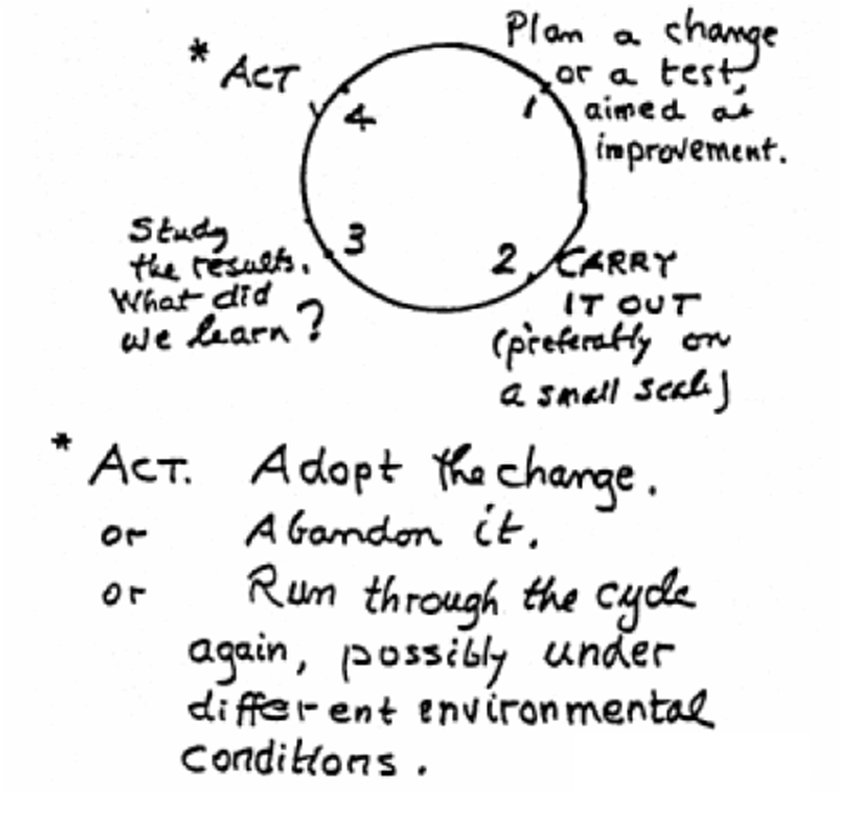 Plan a change
or a test,
aimed at
improvement.
1
2
CARRY
IT OUT
(preferably on
a small scale)
3
Study
the results.
What did
we learn?
4
* ACT
* ACT. Adopt the change.
or Abandon it.
or Run through the cycle
again, possibly under
different environmental
conditions.